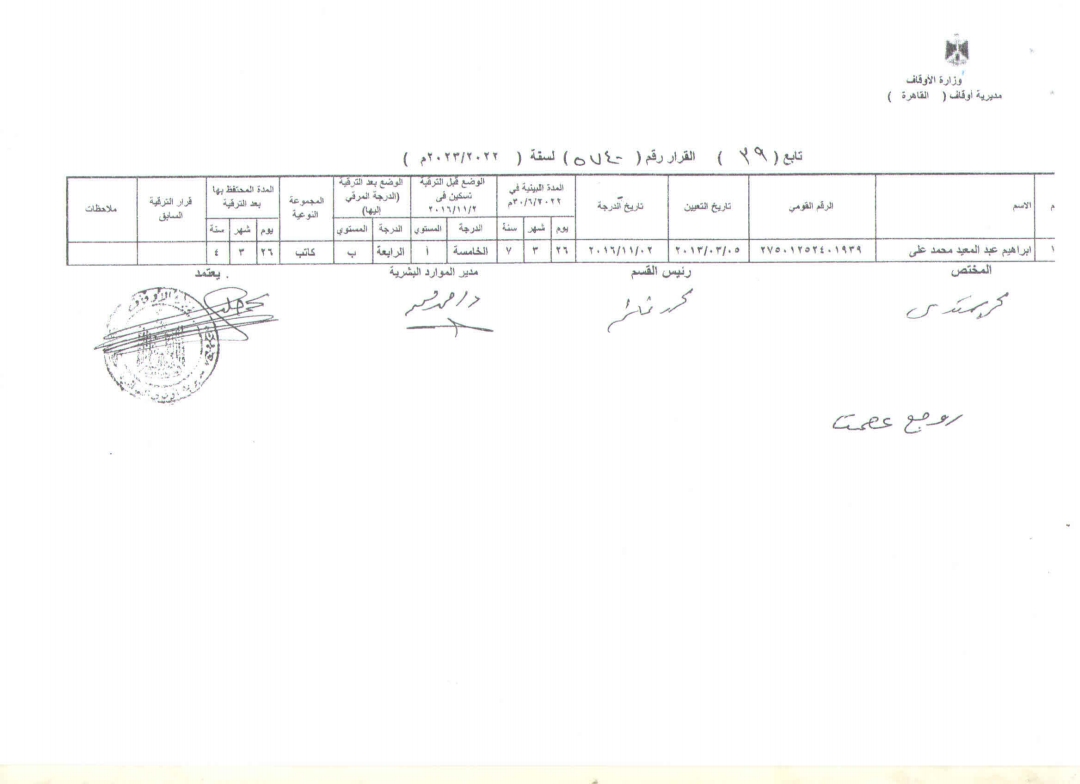 وزارة الأوقاف
مديرية أوقاف ( القاهرة )
تابع ( ٣٩ ) القرار رقم ( ٥٧٤٠ ) لسنة ( ٢٠٢٣/٢٠٢٢م )
م الاسم الرقم القومي تاريخ التعيين تاريخ الدرجة المدة البينية في ٣٠/٦/٢٠٢٢م الوضع قبل الترقية تسكين فى ٢٠١٦/١١/٢ الوضع بعد الترقية (الدرجة المرقي إليها) المجموعة النوعية المدة المحتفظ بها بعد الترقية قرار الترقية السابق ملاحظات
يوم شهر سنة الدرجة المستوي الدرجة المستوي يوم شهر سنة
١ ابراهيم عبد المعيد محمد على ٢٧٥٠١٢٥٢٤٠١٩٣٩ ٢٠١٣/٠٣/٠٥ ٢٠١٦/١١/٠٢ ٢٦ ٣ ٧ الخامسة أ الرابعة ب كاتب ٢٦ ٣ ٤
المختص رئيس القسم مدير الموارد البشرية يعتمد .
روجع عصمت